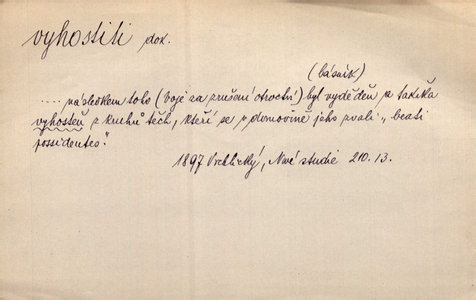 vyhostiti dok.
(básník)
.... následkem toho (boje za zrušení otroctví) byl vyděděn a takřka
vyhostěn z kruhů těch, kteří se v domovině jeho zvali „beati
possidentes".
1897 Vrchlický, Nové studie 210.13.